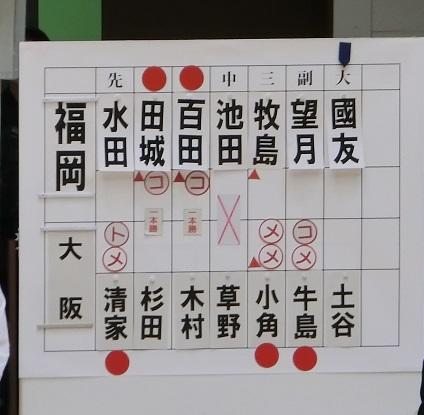 先 中 三 副 大
福岡 水田 田城 百田 池田 牧島 望月 國友
コ コ
一本勝 一本勝
ト メ コ
メ メ メ
大阪 清家 杉田 木村 草野 小角 牛島 土谷